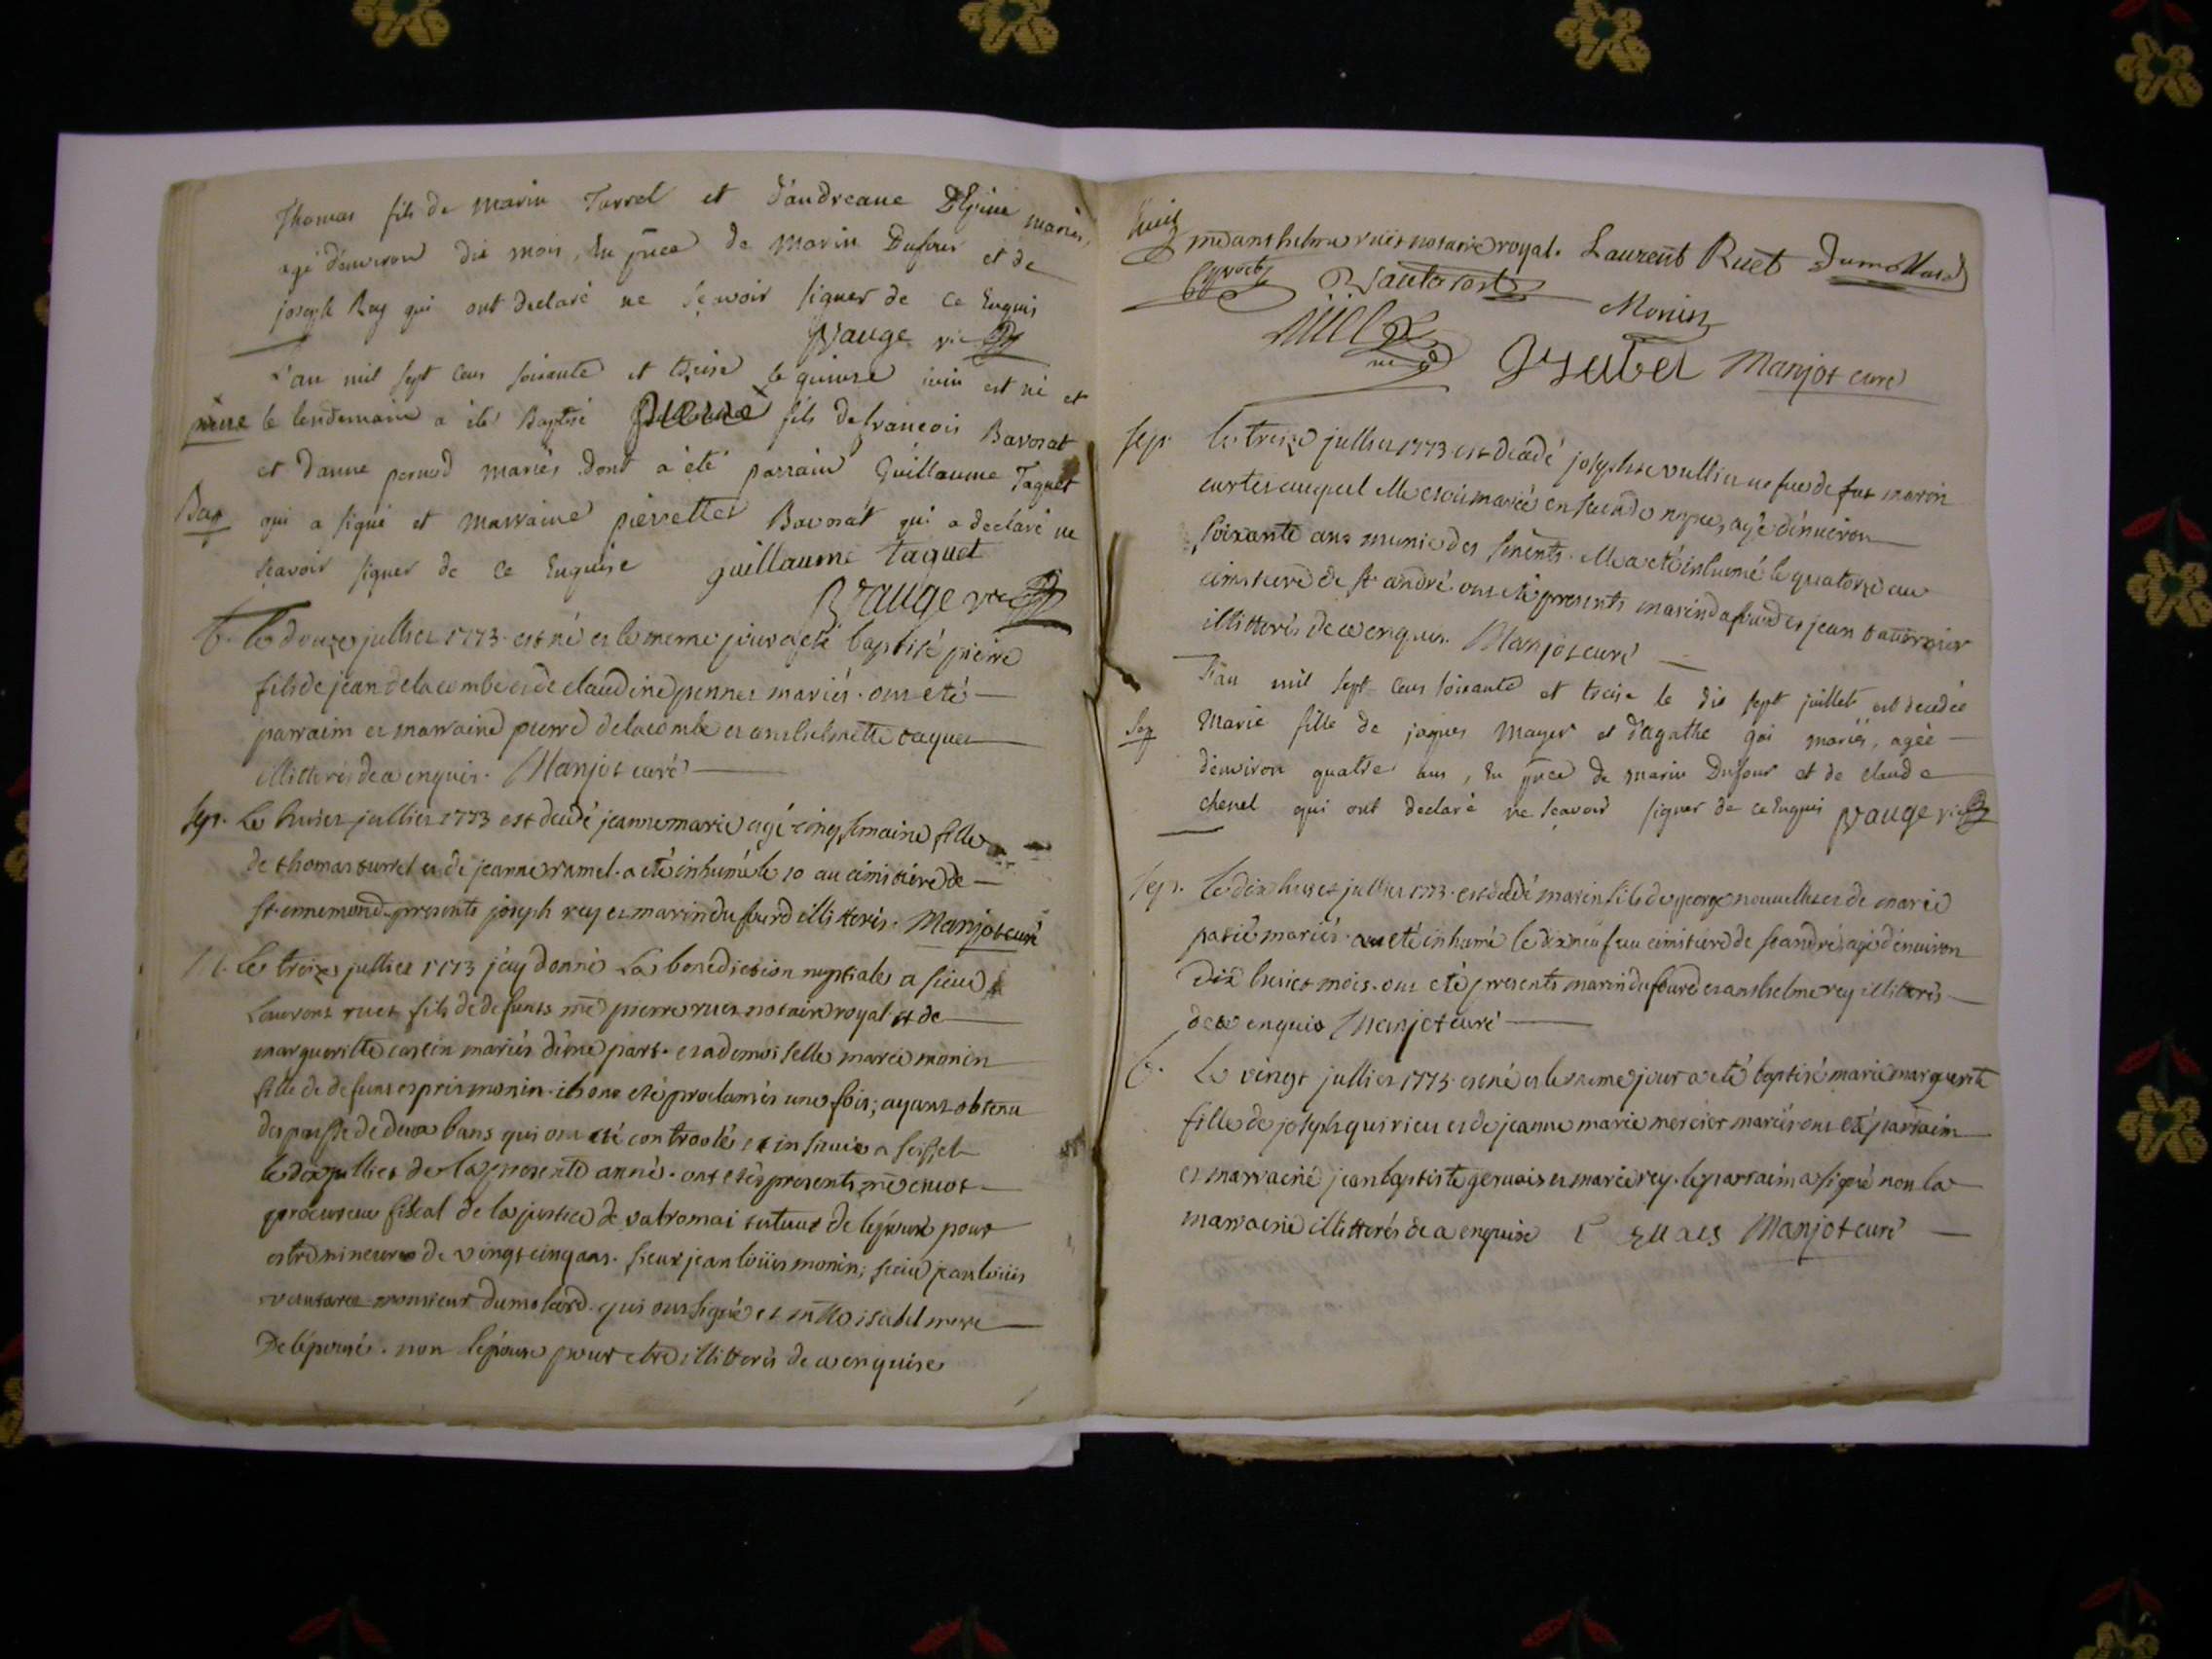 Thomas fils de marin Turrel et d'andreane maries,
agé denviron dix mois, En pnce de Marin Dufour et de
joseph Rey qui ont declaré ne sçavoir signer de ce Enquis
Vauge vic
L'an mil sept cens soixante et treise le quinse juin est né et
pierre le lendemain a été Baptisé pierre fils de francois Bavosat
et d'anne pernod mariés. Dont a été parrain Guillaume Taquet
Bap qui a signé et marraine pierrette Bavosat qui a declaré ne
sçavoir signer de ce Enquise guillaume taquet
Vauge vic
b. Le douze jullier 1773. est né et le meme jour a eté baptisé pierre
fils de jean delacombe et de claudine pennet mariés. ont eté
parraim et marraine pierre delacombe et anshelmette taquet
illitterés de ce enquis. Manjot curé
sep. Le huiet jullier 1773 est decedé jeanne marie agé cinq semaine fille
de thomas turrel et de jeanne ramel. a eté inhumé le 10 au cimitiere de
st. ennemond. presents joseph rey et marin dufourd illitterés. Manjot curé
M. Le treize jullier 1773 jay donné La benediction nuptiale a sieur
Laurent ruet fils de defunts me pierre ruet notaire royal et de
margueritte mariés d'une part. et a demoiselle marie monin
fille de defunt esprit monin. ils ont eté proclamés une fois; ayant obtenu
dispense de deux bans qui ont eté controolés et insinués a seissel
le dix jullier de la presente anné. ont etés presents me
procureur fiscal de la justice de valromai tuteur de lépouse pour
estre mineure de vingt cinq ans. sieur jean loüis monin, sieur jean loüis
monsieur dumolard. qui ont signé et mlle isabel mere
De lépouse. non lépouse pour etre illitterés de ce enquise
me anshelme ruët notaire royal. Laurent Ruet Dumollard
Monin
Ysabel Manjot curé
sep. Le treize jullier 1773. est decedé josephte vullin veufue de marin
auquel elle etoit mariée en seconde nopces, agé dénuiron
soixante ans munie des sements. elle a eté inhumé le quatorze au
cimitiere de st andré. ont eté presents marin dufourd et jean tauernier
illitterés de ce enquis. Manjot curé
L'an mil sept cens soixante et treise le dix sept juillet est decedée
Sep Marie fille de jaques Mayer et d'agathe gai mariés, agée
d'environ quatre ans, En pnce de marin Dufour et de claude
chenel qui ont declaré ne sçavoir signer de ce Enquis Vauge vic
sep. Le dix huiet jullier 1773. est decedé marin fils de george nouuelle et de marie
mariés. a eté inhumé le dix neuf au cimitiere de st andré, agé dénuiron
dix huiet mois. ont eté presents marin dufourd et anshelme rey illitterés
de ce enquis Manjot curé
b. Le vingt jullier 1773. est né et le meme jour a eté baptisé marie marguerite
fille de joseph quirieu et de jeanne marie mercier mariés ont eté parraim
et marraine jean baptiste geruais et marie rey. le parraim a signé non la
marraine illitterés de ce enquise Manjot curé